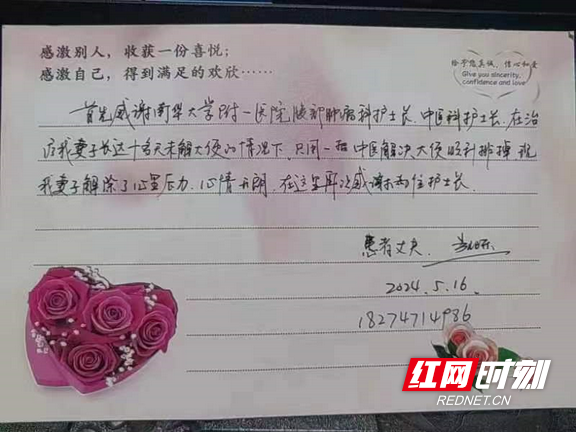 感激别人，收获一份喜悦；
感激自己，得到满足的欢欣……
给予您真诚、信心和爱
Give you sincerity,
confidence and love
首先感谢南华大学附一医院腹部肿瘤科护士长.中医科护士长.在治
疗我妻子长达十多天未解大便的情况下.只用一招中医解决大便
我妻子解除了心里压力.心情开朗.在这里再次感谢两位护士长.
患者丈夫.
2024.5.16.
18274714986
红网时刻
REDNET.CN